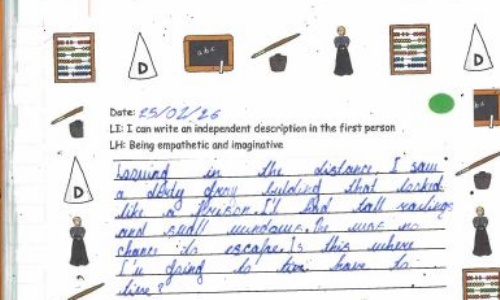 abc
D
D
Date: 25/02/26
LI: I can write an independent description in the first person
LH: Being empathetic and imaginative
in the distance, I saw
a dirty gray bulding that looked
like a Prison. It had tall railings
and small windows. was no
chance to escape. Is this where
I'm going to have to
live?
D